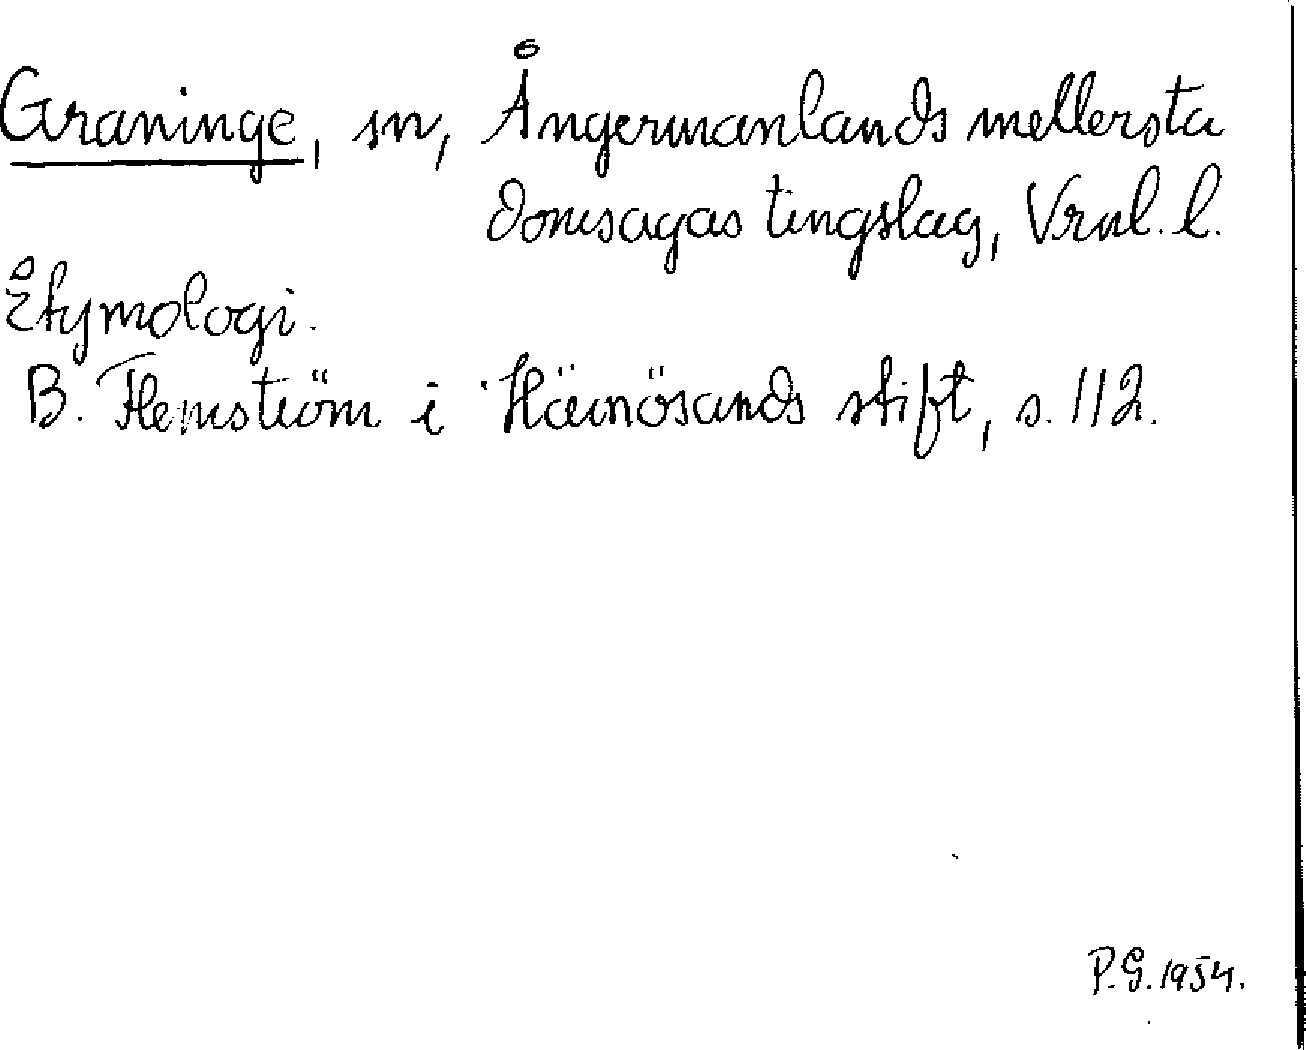 Graninge, sn, Ångermanlands mellersta
domsagas tingslag, Vrnl. l.
Etymologi.
B. Flemström i Härnösands stift, s. 112.
P.G. 1954.